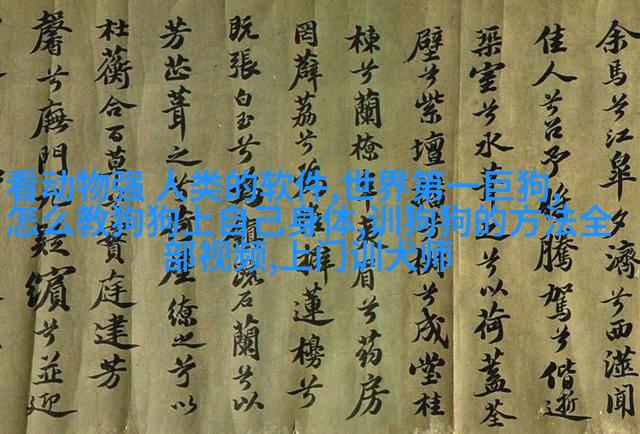 余馬兮江皋夕濟兮西澨聞
佳人兮召予將騰駕兮偕逝
築室兮水之以荷蓋荃
壁兮紫壇成堂桂
棟兮蘭橑眉兮药房
罔薜荔兮蓮櫋兮
既張白玉兮石蘭兮以
芳芷葺之繚之兮以
杜蘅合百草實庭建芳
馨兮廡門九嶷繽兮並迎
看动物强 人类的软件,世界第一巨狗,
怎么教狗狗上自己身体,训狗狗的方法全
部视频,上门训犬师